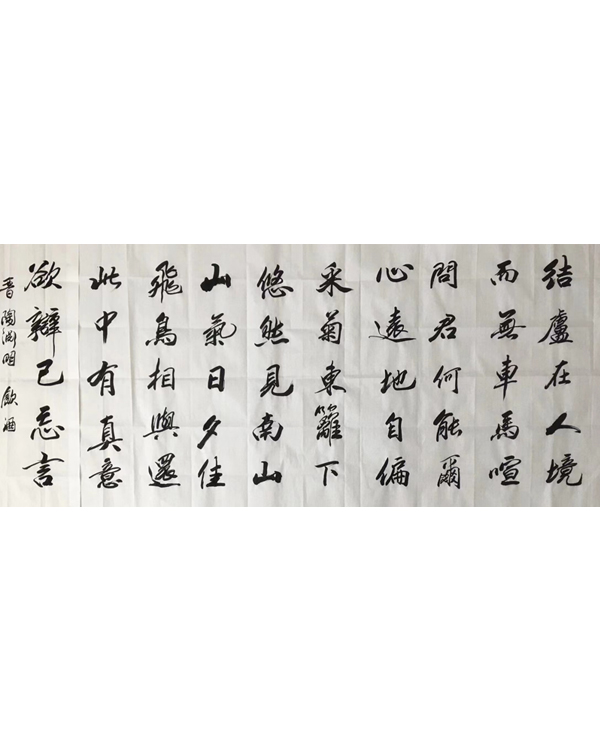 結廬在人境
而無車馬喧
問君何能爾
心遠地自偏
采菊東籬下
悠然見南山
山氣日夕佳
飛鳥相與還
此中有真意
欲辯已忘言
晉陶淵明飲酒